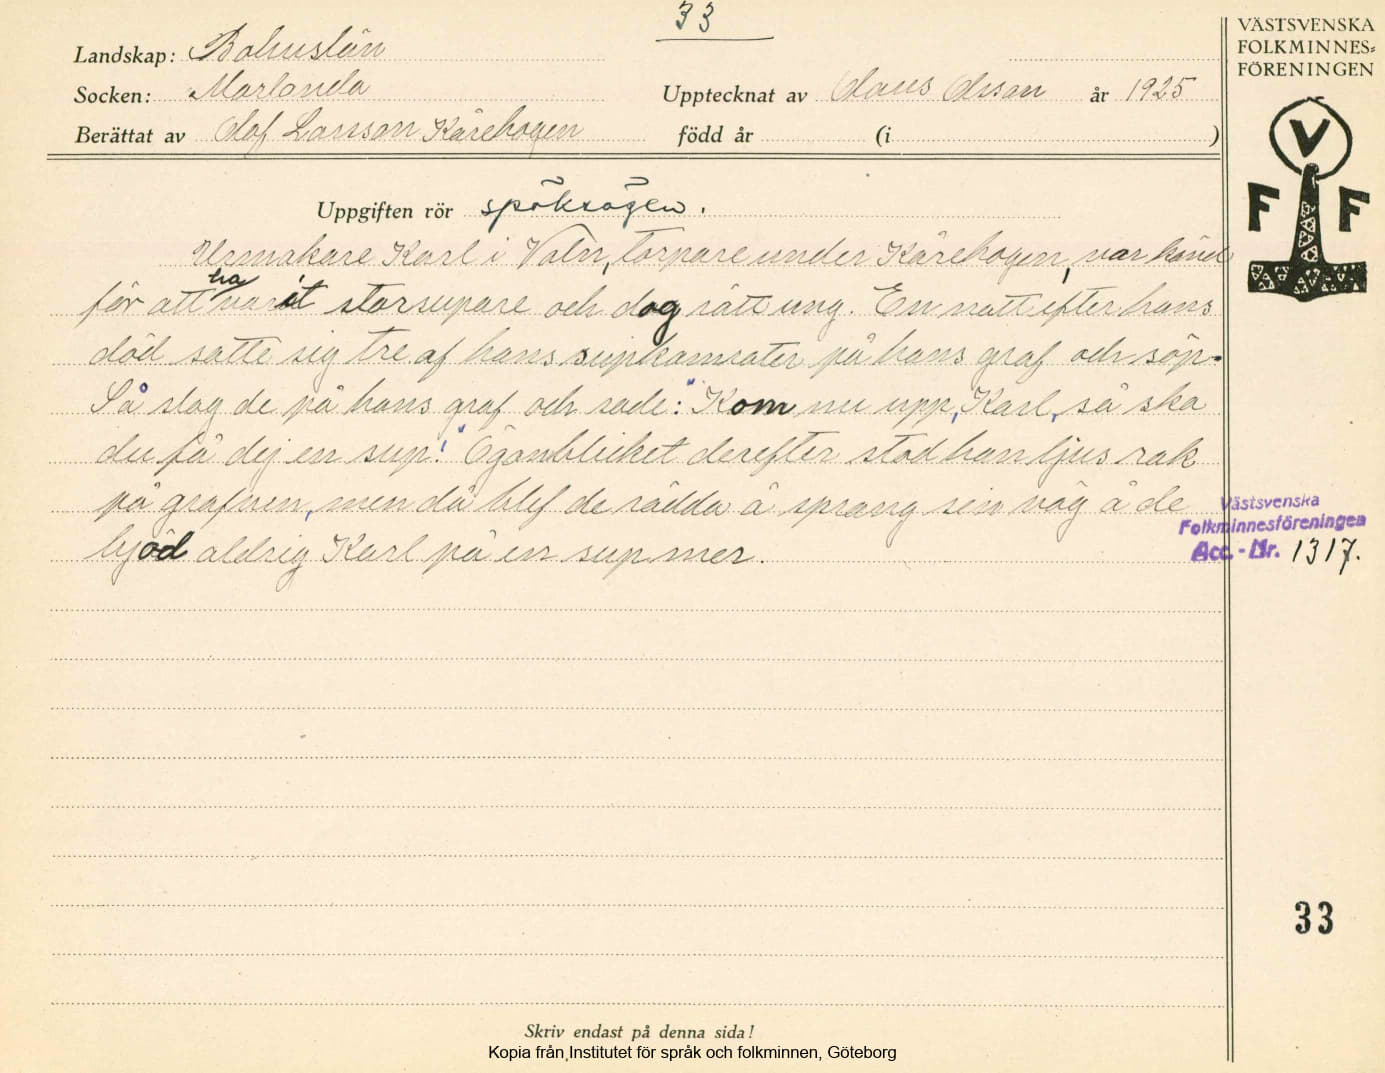 33
VÄSTSVENSKA
FOLKMINNES-
FÖRENINGEN
Landskap: Bohuslän
Socken: Marlanda
Upptecknat av Claus Olsson år 1925
Berättat av Olof Larsson Kärehogen född år (i )
V
F F
Uppgiften rör spöksägen.
Urmakare Karl i Valn, torpare under Kärehogen, var känd
för att ha varit storsupare och dog rätt ung. En natt efter hans
död satte sig tre af hans supkamrater på hans graf och söp.
Så slog de på hans graf och sade: "Kom nu upp, Karl, så ska
du få dej en sup!" Ögonblicket derefter stod han ljus rak
på grafven, men då blef de rädda å sprang sin väg å de
bjöd aldrig Karl på en sup mer.
Västsvenska
Folkminnesföreningen
Acc.-Nr. 1317.
33
Skriv endast på denna sida!
Kopia från Institutet för språk och folkminnen, Göteborg